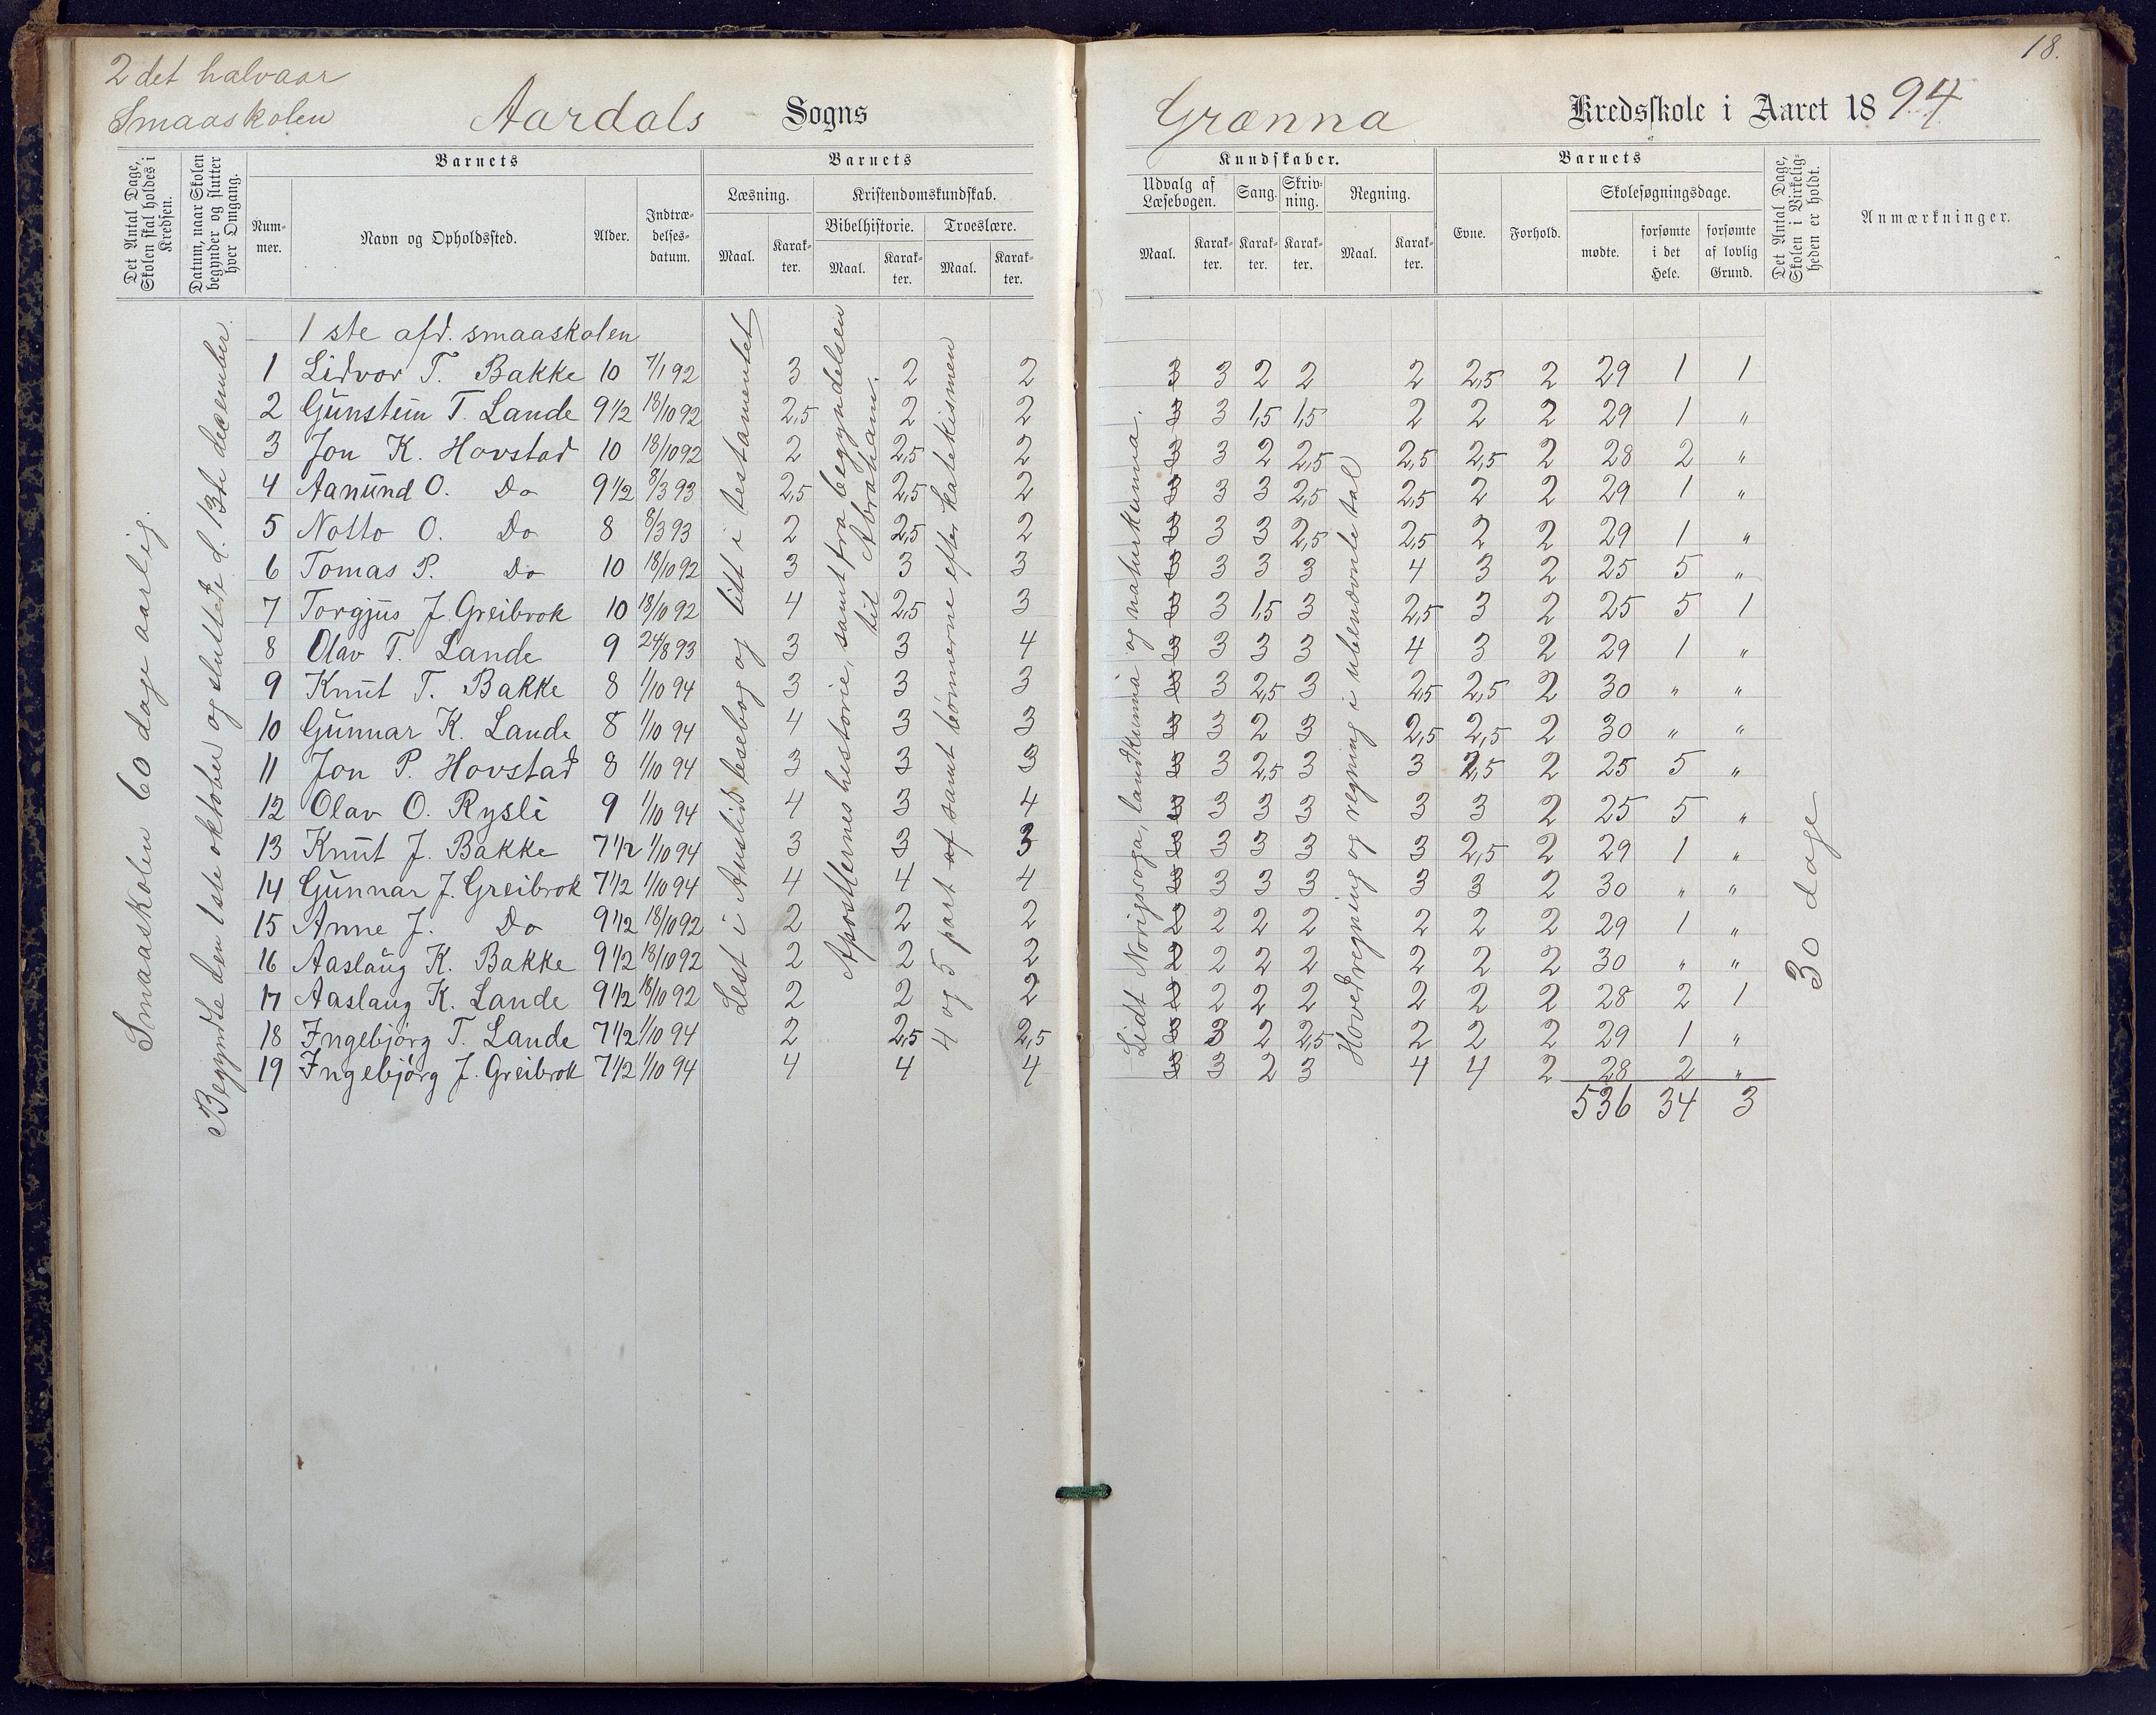 2det halvaar
Smaaskolen
Aardals Sogns
Grænna Kredsskole i Aaret 1894
18.
Det Antal Dage, Skolen skal holdes i Kredsen.
Datum, naar Skolen begynder og slutter hver Omgang.
Barnets
Nummer.
Navn og Opholdssted.
Alder.
Indtrædelsesdatum.
Barnets
Læsning.
Maal.
Karakter.
Kristendomskundskab.
Bibelhistorie.
Maal.
Karakter.
Troeslære.
Maal.
Karakter.
Kundskaber.
Udvalg af Læsebogen.
Maal.
Karakter.
Sang.
Karakter.
Skrivning.
Karakter.
Regning.
Maal.
Karakter.
Barnets
Evne.
Forhold.
Skolesøgningsdage.
mødte.
forsømte i det Hele.
forsømte af lovlig Grund.
Det Antal Dage, Skolen i Virkeligheden er holdt.
Anmærkninger.
Smaaskolen 60 dage aarlig.
Begyndte den 1ste oktober og sluttede d. 13de december.
Lest i Auslid lesebog og litt i testamentet
Apostlernes historie, samt fra begyndelsen til Abraham.
4 og 5 part af samt bønnerne efter katekismen
Lidt Norigssoga, landkunna og naturkunna.
Hovedregning og regning i ubenævnte tal
30 dage
1ste afd. smaaskolen
1 Lidvor T. Bakke 10 7/1 92 3 2 2 3 3 2 2 2 2,5 2 29 1 1
2 Gunstein T. Lande 9 1/2 18/10 92 2,5 2 2 3 3 1,5 1,5 2 2 2 29 1 "
3 Jon K. Hovstad 10 18/10 92 2 2,5 2 3 3 2 2,5 2,5 2,5 2 28 2 "
4 Aanund O. Do 9 1/2 8/3 93 2,5 2,5 2 3 3 3 2,5 2,5 2 2 29 1 "
5 Notto O. Do 8 8/3 93 2 2,5 2 3 3 3 2,5 2,5 2 2 29 1 "
6 Tomas P. Do 10 18/10 92 3 3 3 3 3 3 3 4 3 2 25 5 "
7 Torgjus J. Greibrok 10 18/10 92 4 2,5 3 3 3 1,5 3 2,5 3 2 25 5 1
8 Olav T. Lande 9 24/8 93 3 3 4 3 3 3 3 4 3 2 29 1 "
9 Knut T. Bakke 8 1/10 94 3 3 3 3 3 2,5 3 2,5 2,5 2 30 " "
10 Gunnar K. Lande 8 1/10 94 4 3 3 3 3 2 3 2,5 2,5 2 30 " "
11 Jon P. Hovstad 8 1/10 94 3 3 3 3 3 2,5 3 3 2,5 2 25 5 "
12 Olav O. Rysli 9 1/10 94 4 3 4 3 3 3 3 3 3 2 25 5 "
13 Knut J. Bakke 7 1/2 1/10 94 3 3 3 3 3 3 3 3 2,5 2 29 1 "
14 Gunnar J. Greibrok 7 1/2 1/10 94 4 4 4 3 3 3 3 3 3 2 30 " "
15 Anne J. Do 9 1/2 18/10 92 2 2 2 2 2 2 2 2 2 2 29 1 "
16 Aaslaug K. Bakke 9 1/2 18/10 92 2 2 2 2 2 2 2 2 2 2 30 " "
17 Aaslaug K. Lande 9 1/2 18/10 92 2 2 2 2 2 2 2 2 2 2 28 2 1
18 Ingebjörg T. Lande 7 1/2 1/10 94 2 2,5 2,5 3 3 2 2,5 2 2 2 29 1 "
19 Ingebjörg J. Greibrok 7 1/2 1/10 94 4 4 4 3 3 2 3 4 4 2 28 2 "
536 34 3